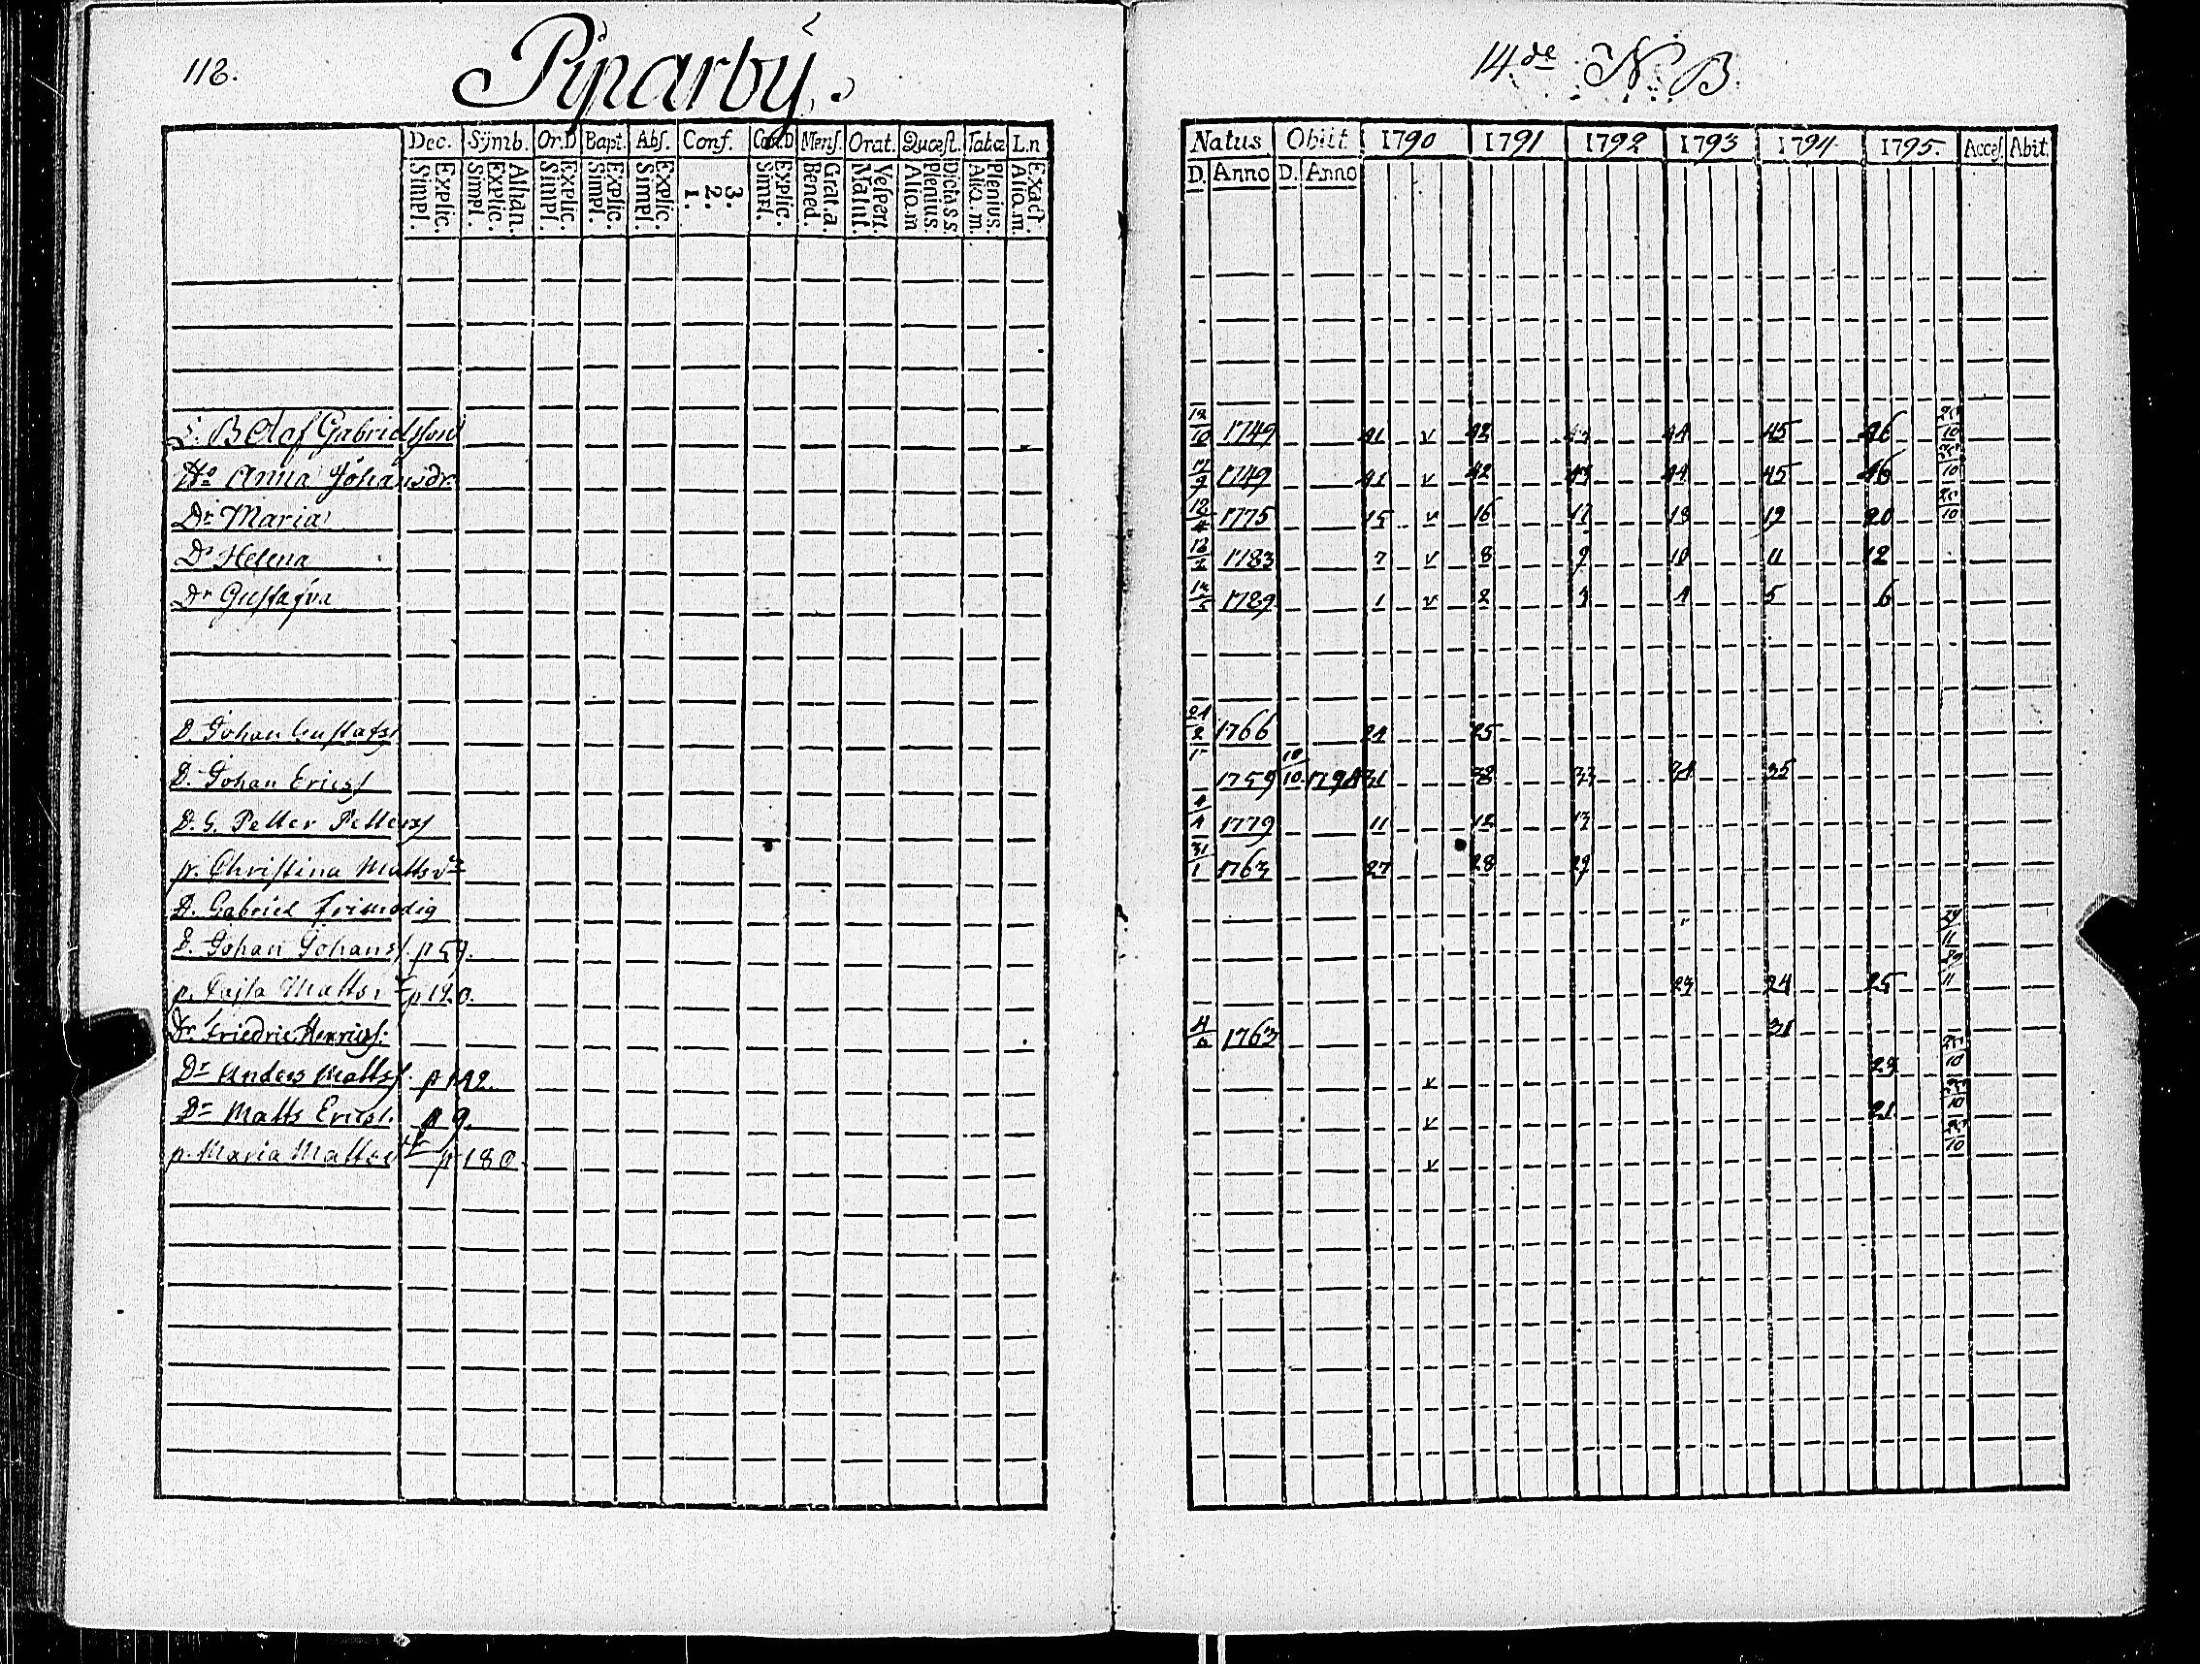 118. Piparby. 14de N. B.
Dec. Symb. Or.D Bapt. Abs. Conf. Cœn.D Mens. Orat. Quæst. Tabæ L.n Natus Obiit 1790 1791 1792 1793 1794 1795. Acces. Abit.
Explic. Simpl. Athan. Explic. Simpl. Explic. Simpl. Explic. Simpl. Explic. Simpl. 3. 2. 1. Explic. Simpl. Grat.a. Bened. Vespert. Matut. Dicta S.S. Plenius. Aliq.m Plenius. Aliq.m. Exact. Aliq.m. D. Anno D. Anno
B Olof Gabrielsson 12/10 1749 41 v 42 43 44 45 46 25/10
Ho Anna Johansdr. 1749 41 v 42 43 44 45 46 25/10
Dr Maria 12/4 1775 15 v 16 17 18 19 20 25/10
Dr Helena 12/2 1783 7 v 8 9 10 11 12
Dr Gustafva 12/5 1789 1 v 2 3 4 5 6
D. Johan Gustafss 24/2 1766 24 25
D. Johan Ericss 1759 18/10 1794 31 32 33 34 35
D. G. Petter Petterss 4/4 1779 11 12 13
p. Christina Mattsdr 31/1 1763 27 28 29
D. Gabriel Frimodig
D. Johan Johanss. p 59. 29/11
p. Cajsa Mattsdr p 120. 23 24 25 29/11
Dr. Friedric Henricss. 4/6 1763 31
Dr Anders Mattss. p 142. v 23 25/10
Dr Matts Ericss. p 9. v 21 25/10
p. Maria Mattsdr p 180. v 25/10